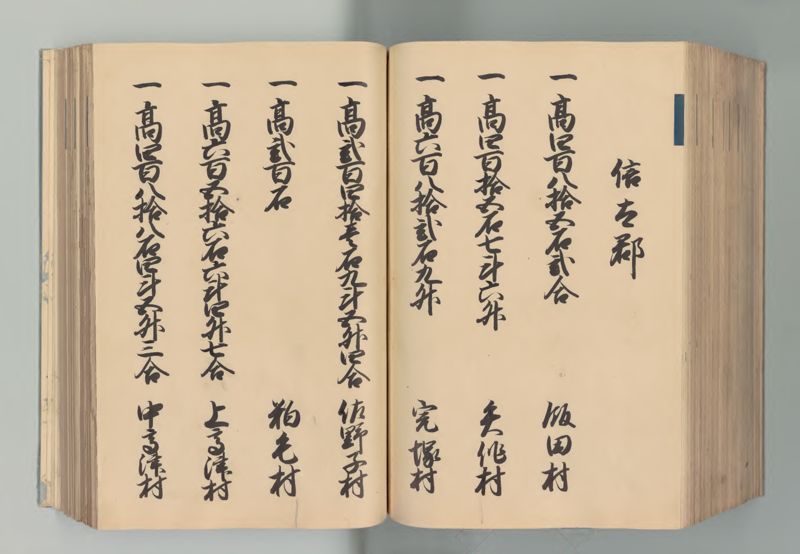 信太郡
一高四百八拾五石弐合 飯田村
一高四百拾五石七斗六升 矢作村
一高六百八拾弐石九升 宍塚村
一高弐百四拾壱石九斗五升四合 佐野子村
一高弐百石 粕毛村
一高六百五拾六石六斗四升七合 上高津村
一高四百八拾八石四斗五升三合 中高津村